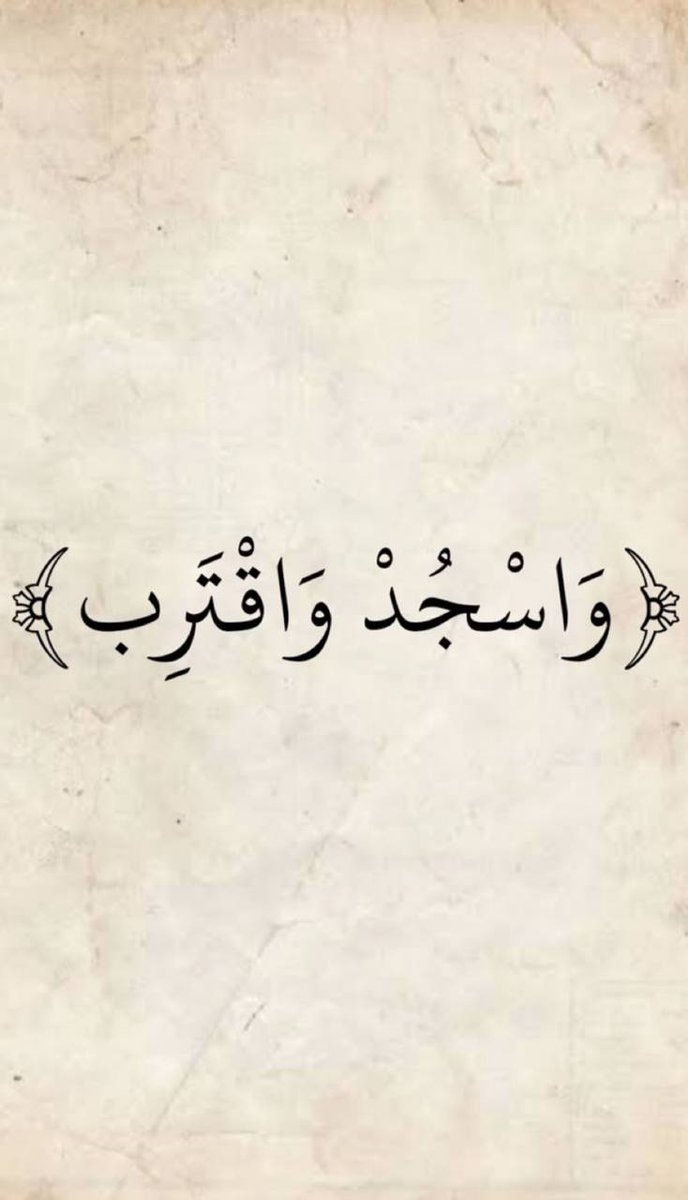 ﴿ وَاسْجُدْ وَاقْتَرِب ﴾